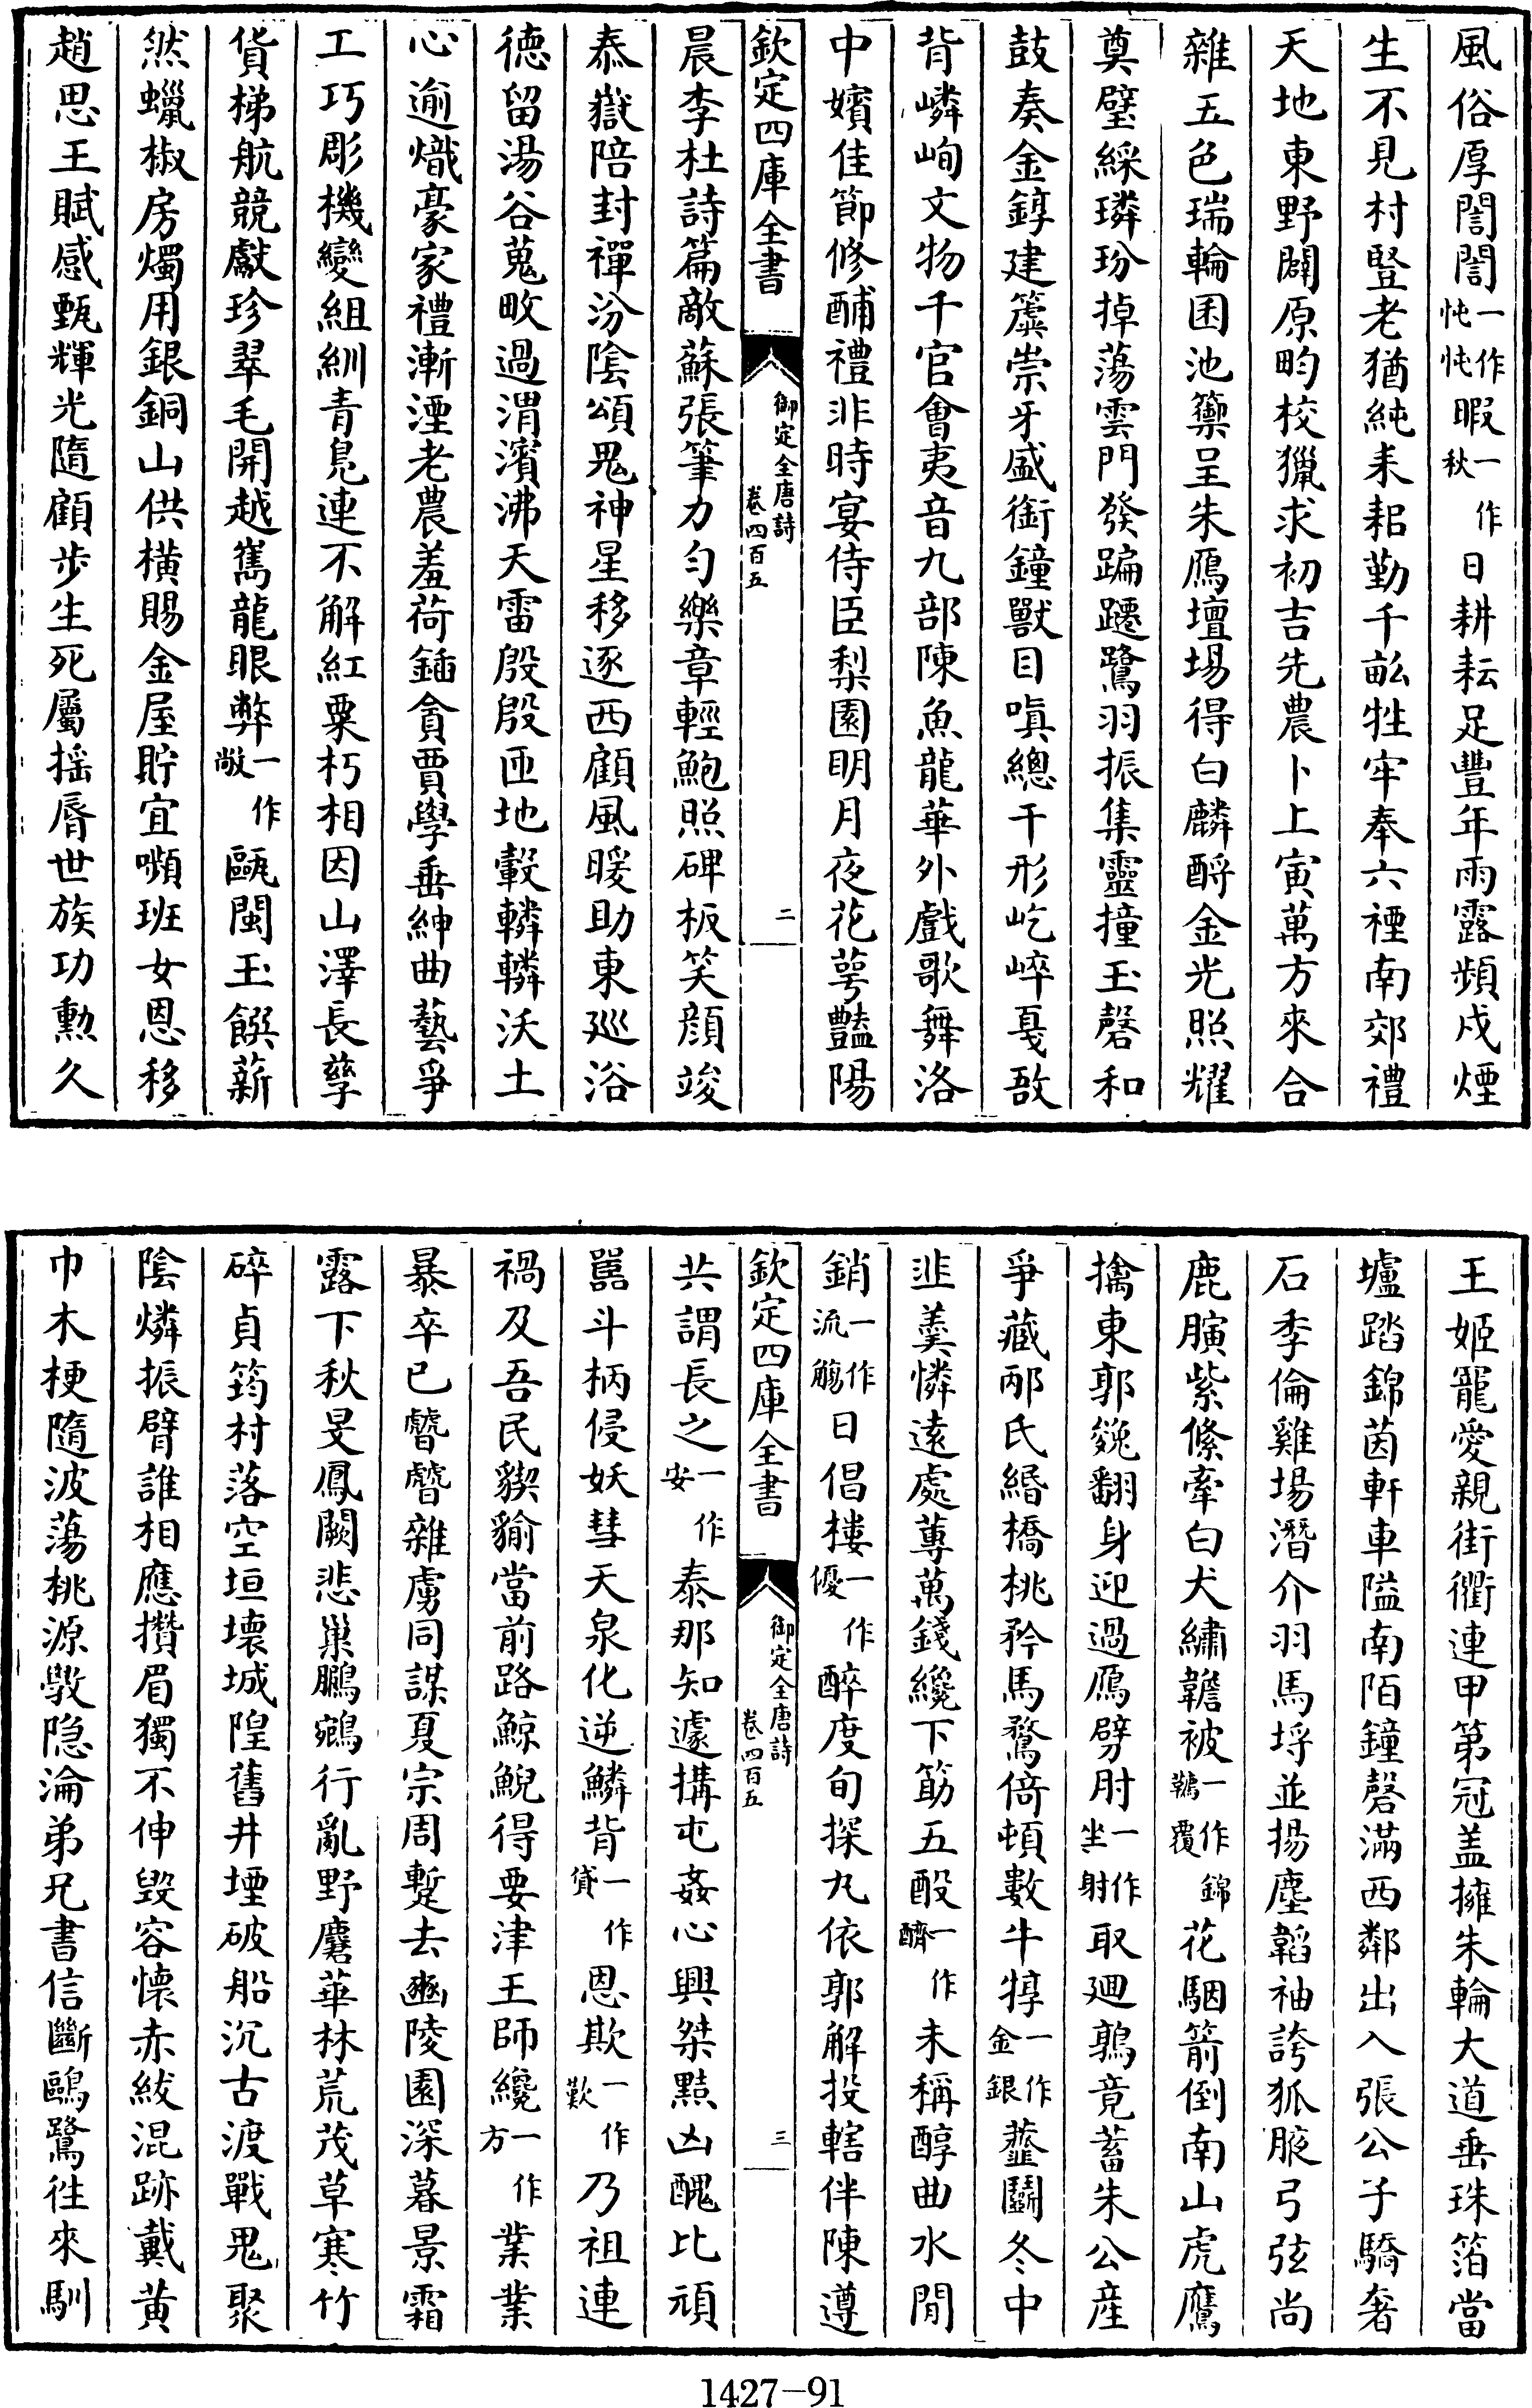 風俗厚誾誾一作忳忳暇一作秋日耕耘足豐年雨露頻戍煙
生不見村豎老猶純耒耜勤千畝牲牢奉六禋南郊禮
天地東野闢原畇校獵求初吉先農卜上寅萬方來合
雜五色瑞輪囷池籞呈朱鴈壇場得白麟酹金光照耀
奠璧綵璘玢掉蕩雲門發蹁躚鷺羽振集靈撞玉磬和
鼓奏金錞建簴崇牙盛銜鐘獸目嗔總干形屹崪戛敔
背嶙峋文物千官會夷音九部陳魚龍華外戲歌舞洛
中嬪佳節修酺禮非時宴侍臣梨園明月夜花萼豔陽
欽定四庫全書 御定全唐詩 卷四百五 二
晨李杜詩篇敵蘇張筆力勻樂章輕鮑照碑板笑顏竣
泰嶽陪封禪汾陰頌鬼神星移逐西顧風暖助東巡浴
德留湯谷蒐畋過渭濱沸天雷殷殷匝地轂轔轔沃土
心逾熾豪家禮漸湮老農羞荷鍤貪賈學垂紳曲藝爭
工巧彫機變組紃青鳧連不解紅粟朽相因山澤長孳
貨梯航競獻珍翠毛開越嶲龍眼弊一作敞甌閩玉饌薪
然蠟椒房燭用銀銅山供橫賜金屋貯宜嚬班女恩移
趙思王賦感甄輝光隨顧步生死屬搖脣世族功勲久
王姬寵愛親街衢連甲第冠盖擁朱輪大道垂珠箔當
壚踏錦茵軒車隘南陌鐘磬滿西鄰出入張公子驕奢
石季倫雞場潛介羽馬埒並揚塵韜袖誇狐腋弓弦尚
鹿䐠紫絛牽白犬繡韂被一作韉覆錦花駰箭倒南山虎鷹
擒東郭㕙翻身迎過鴈劈肘一作坐射取廻鶉竟蓄朱公產
爭藏邴氏緡橋桃矜馬鶩倚頓數牛犉一作金銀虀鬬冬中
韭羹憐遠處蓴萬錢纔下筯五酘一作醹未稱醇曲水閒
銷一作流觴日倡樓一作優醉度旬探丸依郭解投轄伴陳遵
欽定四庫全書 御定全唐詩 卷四百五 三
共謂長之一作安泰那知遽搆屯姦心興桀黠凶醜比頑
嚚斗柄侵妖彗天泉化逆鱗背一作貸恩欺一作歎乃祖連
禍及吾民猰㺄當前路鯨鯢得要津王師纔一作方業業
暴卒已朁朁雜虜同謀夏宗周蹔去豳陵園深暮景霜
露下秋旻鳳闕悲巢鵩鵷行亂野麏華林荒茂草寒竹
碎貞筠村落空垣壞城隍舊井堙破船沉古渡戰鬼聚
陰燐振臂誰相應攢眉獨不伸毀容懷赤紱混跡戴黃
巾木梗隨波蕩桃源斆隱淪弟兄書信斷鷗鷺徃來馴
1427-91